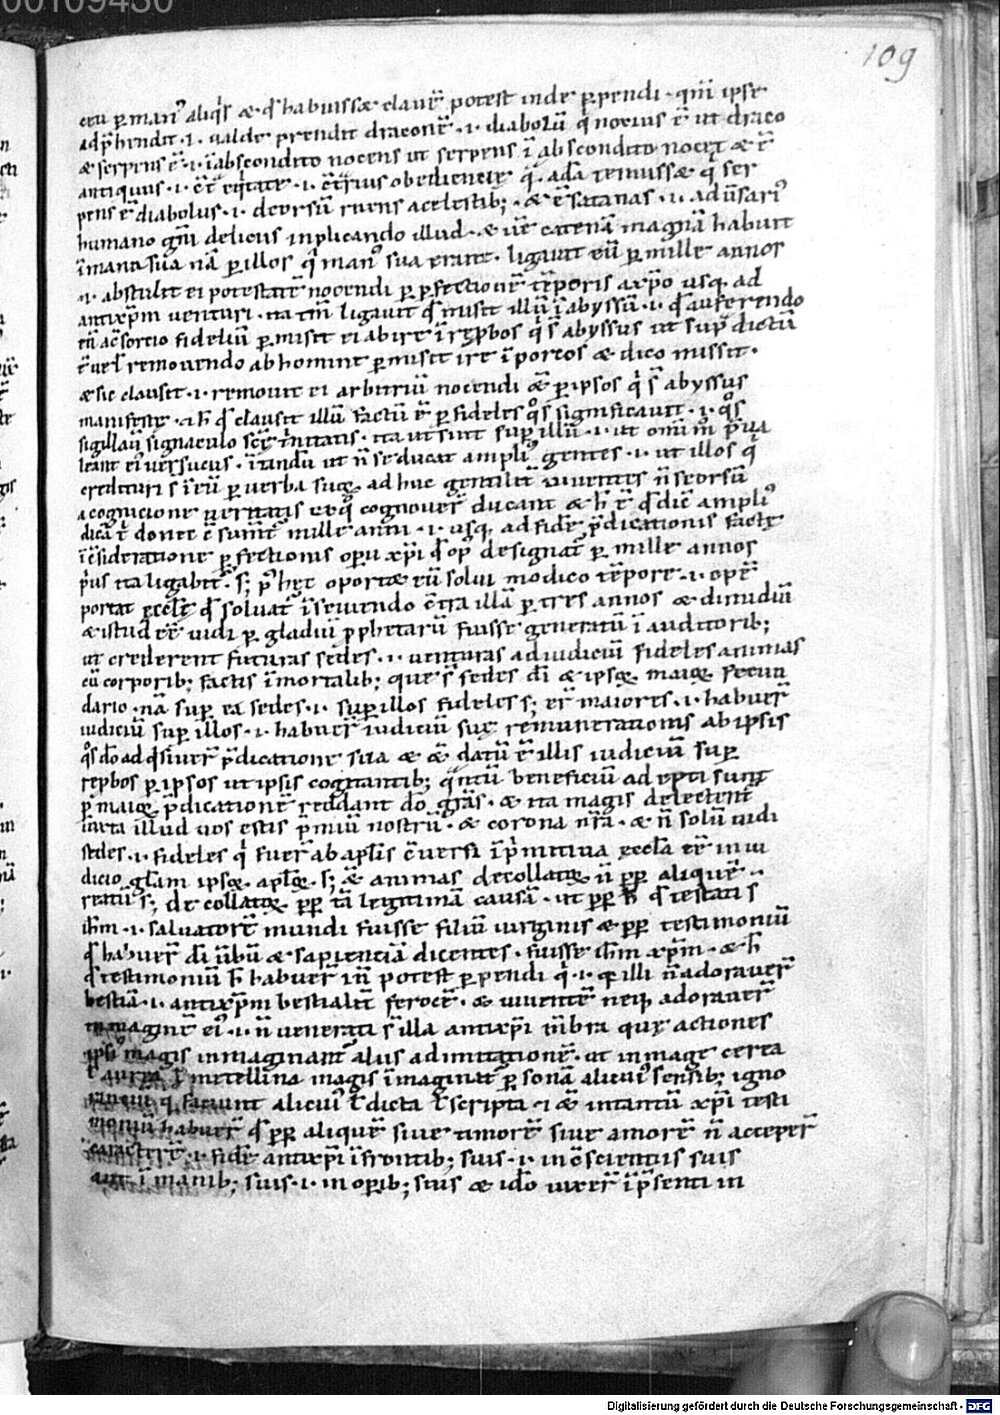 00109430
109
ceu p̄ man᷒ aliq͛s & qd̄ habuissæ clauē potest inde p̱pendi · qm̄ ipse
adp̄hendit · i · ualde prendit draconē · i · diabolū q͛ nociuus ē ut draco
& serpens ē · i · ī abscondito nocens ut serpens ī abscondito nocet & ē
pens ē diabolus · i · deorsū ruens a celestib; · & ē satanas · i · adusari᷒
humano gn̄i delicus inplicando illud · & uē catenā magnā habuit
ī manu sua nā p̱ illos q͛ man᷒ sua erant · ligauit eū p̱ mille annos
· i · abstulit ei potestatē nocendi p̱ p̱fectionē tēporis a xp̄o usq, ad
antixp̄m uenturi · ita tm̄ ligauit qd̄ misit illū ī abyssū · i · qd̄ auferendo
eū a c̄sorcio fideliū p̱misit ei abire ī rep̱bos q͛ s̄ abyssus ut sup̱ dictū
ē uel remouendo ab homine p̱misit ire ī porcos & dico missit ·
& sic clausit · i · remouit ei arbitriū nocendi & p̱ ipsos q͛ s̄ abyssus
manifeste · & h̄ qd̄ clausit illū factū ē p̱ fideles q͛s significauit · i · q͛s
sigillauit signaculo scē t̄nitatis · ita ut sint sup̱ illū · i · ut
leant ei᷒ uersucus · ī tandū ut n̄ seducat ampli᷒ gentes · i · ut illos q͛
credituri s̄ ī eū p̱ uerba suę adhuc gentilit̄ uiuentes n̄ seorsū
a cognicione ueritatis ex q͛ cognouer̄ ducant & h̄ ē qd̄ dic̄ ampli᷒
donec c̄sum̄t mille anni · i · usq, ad fidē p̄dicationis factę
ī c̄sideratione p̱fectionis op̱u xp̄i qd̄ op̱ designat͛ p̱ mille annos
p͛us ita ligabit͛ · s; p᷒ hęc oportæ eū solui modico tēpore · i · opꝫ
portat ęcclę qd̄ soluat͛ ī seuiendo c̄tra illā p̱ tres annos & dimidiū
& istud ēē uidi p̱ gladiū p̱phetarū fuisse generatū ī auditorib;
ut crederent futuras sedes · i · uenturas ad iudiciū fideles animas
cū corporib; factis īmortalib; que s̄ sedes dī & ipsoꝝ maioꝝ secun
dario · nā sup̱ ea sedes · i · sup̱ illos fideles s; er̄ maiores · i · habuer̄
iudiciū sup̱ illos · i · habuer̄ iudiciū suę remunerationis ab ipsis
q͛s dō adq͛siuer̄ p̄dicatione sua & & datū ē illis iudiciū sup̱
rep̱bos p̱ ipsos ut ipsis cogitantib; q͛ntū beneficiū adepti sunt
p̱ maioꝝ p̄dicationē reddant dō grās · & ita magis delectent͛
iuxta illud uos estis p̄miū nostrū · & corona nr̄a · & n̄ solū uidi
sedes · i · fideles q͛ fuer̄ ab aplis c̄uersi ī p͛mitiua ęccla ēē in iu
dicio glām ipsoꝝ aploꝝ · s; & animas decollatoꝝ n̄ pp̱ aliquē
reatū s; decollatoꝝ pp̱ tā legitimā causā · ut pp̱ h̄ qd̄ testatis
ihm · i · saluatorē mundi fuisse filiū uirginis & pp̱ testimoniū
qd̄ habuer̄ dī ūbū & sapienciā dicentes · fuisse ihm xp̄m · & h̄
qd̄ testimoniū h̄ habuer̄ in potest p̱pendi q͛ · i · q͛ illi n̄ adorauer̄
bestiā · i · antixp̄m bestialit̄ ferocē · & uiuentē neq, adorauer̄
inmaginē ei᷒ · i · n̄ uenerati s̄ illa antixp̄i mb̄ra quę actiones
ipsi᷒ magis inmaginant͛ alius ad imitationē · ut inmago cerea
ł aurea ł metellina magis īmaginat͛ p̱sonā alicui᷒ sensib; igno
rantiū q͛ faciunt alicui᷒ ł dicta ł scripta · & intantū xp̄i testi
moniū habuer̄ qd̄ pp̱ aliquē siue timorē siue amorē n̄ acceper̄
caracterē · i · fidē antixp̄i ī frontib; suis · i · in c̄scientiis suis
aut ī manib; suis · i · in op̱ib; suis & idō uixer̄ ī p̄senti in
Digitalisierung gefördert durch die Deutsche Forschungsgemeinschaft · DFG